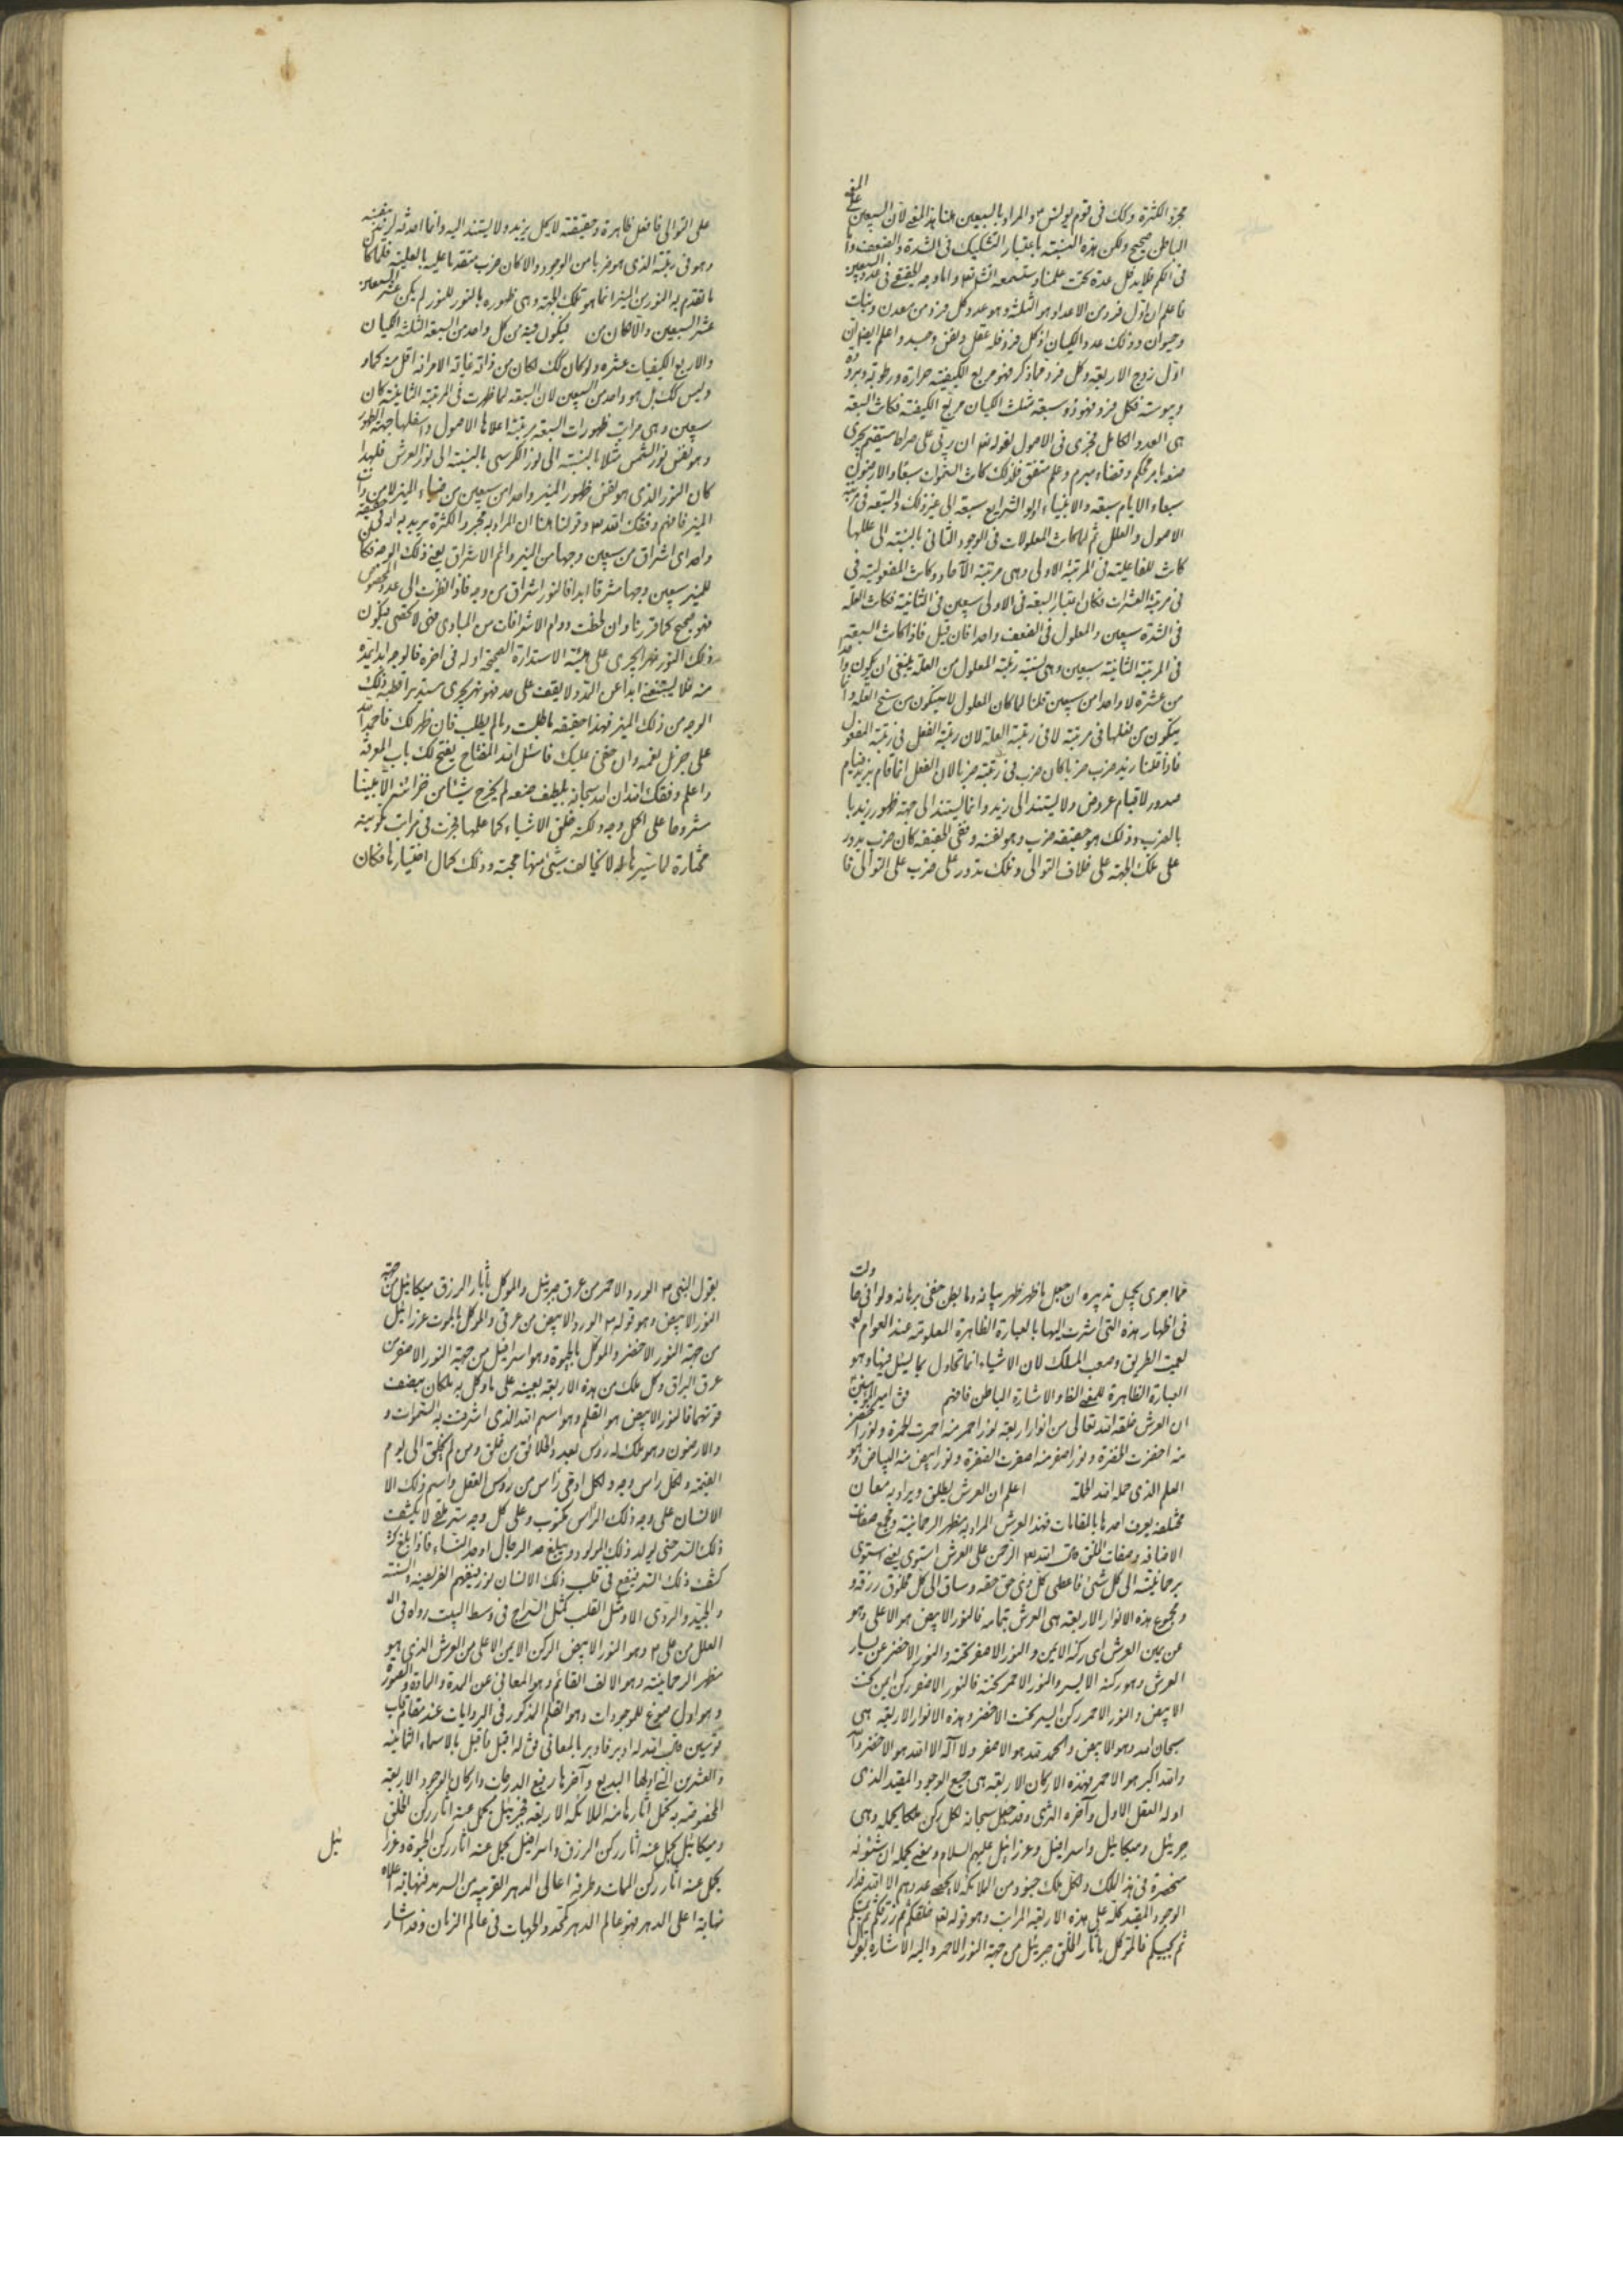 مجرد الكثرة وكك في قوم يونس والمراد بالسبعين هنا هذا المعنى لان السبعين على المعنى
الباطن صحيح ولكن هذه النسبة باعتبار التشكيك في الشدة والضعف واما
في الكم فلا يدخل عدة تحت علمنا
فاعلم ان اول فرد من الاعداد هو الثلثة وهو عدد كل فرد من معدن ونبات
وحيوان وذلك عدد الكيان اذ كل فرد فله عقل ونفس وجسد واعلم ايضا ان
اول زوج الاربعة وكل فرد مما ذكر فهو مربع الكيفية حرارة ورطوبة وبرودة
ويبوسة فكل فرد فهو ذو سبعة مثلث الكيان مربع الكيفية فكانت السبعة
هي العدد الكامل فجرى في الاصول لقوله تعالى ان ربي على صراط مستقيم فجرى
صنعه بامر محكم وقضاء مبرم وعلم متقن فلذلك كانت السموات سبعا والارضون
سبعا والايام سبعة والانبياء اولو الشرايع سبعة الى غير ذلك والسبعة في مرتبة
الاصول والعلل ثم لما كانت المعلولات في الوجود الثاني بالنسبة الى عللها
كانت للفاعلية في المرتبة الاولى وهي مرتبة الآحاد وكانت المفعولية في
في مرتبة العشرات فكان اعتبار السبعة في الاولى سبعين في الثانية فكانت العلة
في الشدة سبعين والمعلول في الضعف واحدا فان قيل فاذا كانت السبعة
في المرتبة الثانية سبعين وهي نسبة رتبة المعلول من العلة ينبغي ان يكون واحدا
من عشرة لا واحدا من سبعين قلنا لما كان المعلول لا يتكون من سنخ العلة وانما
يتكون من فعلها في مرتبته لا في رتبة العلة لان رتبة الفعل في رتبة المفعول
فاذا قلنا زيد ضرب ضربا كان ضرب في رتبة ضربا لان الفعل انما قام بزيد قيام
صدور لا قيام عروض ولا يستند الى زيد وانما يستند الى جهة ظهور زيد با
بالضرب وذلك هو حقيقة ضرب وهو نفسه وفي الحقيقة كان ضرب يدور
على تلك الجهة على خلاف التوالي وتلك تدور على ضرب على التوالي فا
على التوالي فافعل ظاهرة وحقيقة لا يحل بزيد ولا يستند اليه وانما احدثه زيد بنفسه
وهو في رتبة الذي هو ضربا من الوجود والا كان ضرب متقدما عليه بالعلية فلما كان
ما تقدم به النور من المنير انما هو تلك الجهة وهي ظهوره بالنور للنور لم يكن عشر السبعين
عشر السبعين والا لكان من فيكون فيه من كل واحد من السبعة الثلثة الكيان
والاربع الكيفيات عشره ولو كان كك لكان من ذاته غاية الامر انه اقل منه كما و
وليس كك بل هو واحد من السبعين لان السبعة لما ظهرت في المرتبة الثانية كان
سبعين وهي مراتب ظهورات السبعة مرتبة اعلاها الاصول واسفلها جهة الظهور
وهو نفس نور الشمس مثلا بالنسبة الى نور الكرسي بالنسبة الى نور العرش فلهذا
كان النور الذي هو نفس ظهور المنير واحدا من سبعين من ضياء المنير لا من ذات
المنير فافهم وفقك الله وقولنا هنا ان المراد به مجرد الكثرة يريد به انه في الحقيقة
واحد اي اشراق من سبعين وجها من المنير دائم الاشراق يعني ذلك الوجه فكان
للمنير سبعين وجها مشرقا ابدا فالنور اشراق من وجه فاذا نظرت الى عدد مخصوص
فهو صحيح كما قررنا وان لحظت دوام الاشراقات من المبادي فهي لا تحصى فيكون
ذلك النور نهرا يجري على هيئة الاستدارة الصحيحة اوله في اخره فالوجه ابدا يمده
منه فلا يستغني ابدا عن المدد ولا يقف على حد فهو نهر يجري مستديرا قطبه ذلك
الوجه من ذلك المنير فهذا حقيقة ما طلبت وما لم يطلب فان ظهر لك فاحمد الله
على جزيل نعمه وان خفي عليك فاسئل الله المفتاح يفتح لك باب المعرفة
واعلم وفقك الله ان الله سبحانه بلطيف صنعه لم يخرج شيئا من خزائنه الا مبينا
مشروحا على اكمل وجه ولكنه خلق الاشياء كما علمها فجرت في مراتب تكوينه
مختارة لما يسرها له لا يخالف شيء منها محبته وذلك كمال اختيارها فكان
مما اجرى بجميل تدبيره ان جعل ما ظهر ظهر ببيانه وما بطن خفي ببرهانه ولو انني حاولت
في اظهار هذه التي اشرت اليها بالعبارة الظاهرة المعلومة عند العوام
لعميت الطريق وصعب المسلك لان الاشياء انما تحاول بما يسئل فيها وهو
العبارة الظاهرة للمعنى الظاهر والاشارة للباطن فافهم قال امير المؤمنين
ان العرش خلقه الله تعالى من انوار اربعة نور احمر منه احمرت الحمرة ونور اخضر
منه اخضرت الخضرة ونور اصفر منه اصفرت الصفرة ونور ابيض منه البياض وهو
العلم الذي حمله الله الحملة اعلم ان العرش يطلق ويراد به معان
مختلفة يعرف احدها بالمقامات فهذا العرش المراد به مظهر الرحمانية ومجمع صفات
الاضافة وصفات الخلق قال الله تعالى الرحمن على العرش استوى يعني استوى
برحمانيته الى كل شيء فاعطى كل ذي حق حقه وساق الى كل مخلوق رزقه و
ومجموع هذه الانوار الاربعة هي العرش بتمامه فالنور الابيض هو الاعلى وهو
عن يمين العرش اي ركنه الايمن والنور الاصفر تحته والنور الاخضر عن يسار
العرش وهو ركنه الايسر والنور الاحمر تحته فالنور الاصفر ركن ايمن تحت
الابيض والنور الاحمر ركن ايسر تحت الاخضر وهذه الانوار الاربعة هي
سبحان الله وهو الابيض والحمد لله هو الاصفر ولا اله الا الله هو الاخضر والله
والله اكبر هو الاحمر فهذه الاركان الاربعة هي جميع الوجود المقيد الذي
اوله العقل الاول وآخره الثرى وقد جعل سبحانه لكل ركن ملكا يحمله وهي
جبرئيل وميكائيل واسرافيل وعزرائيل عليهم السلام ومعنى يحمله ان شئونه
منحصرة في هذا الملك ولكل ملك جنود من الملائكة لا يحصي عددهم الا الله فدار
الوجود المقيد كله على هذه الاربعة المراتب وهو قوله تعالى خلقكم ثم رزقكم ثم يميتكم
ثم يحييكم فالموكل بآثار الخلق جبرئيل من جهة النور الاحمر واليه الاشارة بقول
بقول النبي الورد الاحمر من عرق جبرئيل والموكل بآثار الرزق ميكائيل من جهة
النور الابيض وهو قوله الورد الابيض من عرقي والموكل بالموت عزرائيل
من جهة النور الاخضر والموكل بالحيوة وهو اسرافيل من جهة النور الاصفر من
عرق البراق وكل ملك من هذه الاربعة يعينه على ما وكل به ملكان بنصف
قوتهما فالنور الابيض هو القلم وهو اسم الله الذي اشرقت به السموات و
والارضون وهو ملك له رؤس بعدد الخلائق من خلق ومن لم يخلق الى يوم
القيمة ولكل راس وجه ولكل ادمي راس من رؤس العقل واسم ذلك الا
الانسان على وجه ذلك الراس مكتوب وعلى كل وجه ستر ملقى لا يكشف
ذلك الستر حتى يولد ذلك المولود ويبلغ حد الرجال او حد النساء فاذا بلغ
كشف ذلك الستر فيقع في قلب ذلك الانسان نور فيفهم الفريضة والسنة
والجيد والردي الا ومثل القلب كمثل السراج في وسط البيت رواه في ال
العلل من علي وهو النور الابيض الركن الايمن الاعلى من العرش الذي هو
مظهر الرحمانية وهو الالف القائم وهو المعاني عن المدة والمادة والصورة
وهو اول صوغ للموجودات وهو القلم المذكور في الروايات عند مقام قاب
قوسين قال الله له ادبر فادبر بالمعاني قال له اقبل فاقبل بالاسماء الثمانية
والعشرين التي اولها البديع وآخرها رفيع الدرجات واركان الوجود الاربعة
المخصوصة به تحمل آثارها منه الملائكة الاربعة فجبرئيل يحمل عنه آثار ركن الخلق
وميكائيل يحمل عنه آثار ركن الرزق واسرافيل يحمل عنه آثار ركن الحيوة وعزرا
ئيل
يحمل عنه آثار ركن الممات وطرفه اعالي الدهر القريبة من السرمد فنهاية اعلاه
نهاية اعلى الدهر فهو عالم الدهر كمحدد الجهات في عالم الزمان وقد اشار